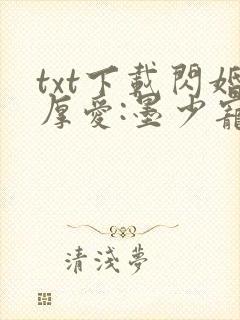 txt下載閃婚
厚愛:墨少寵
清淺夢